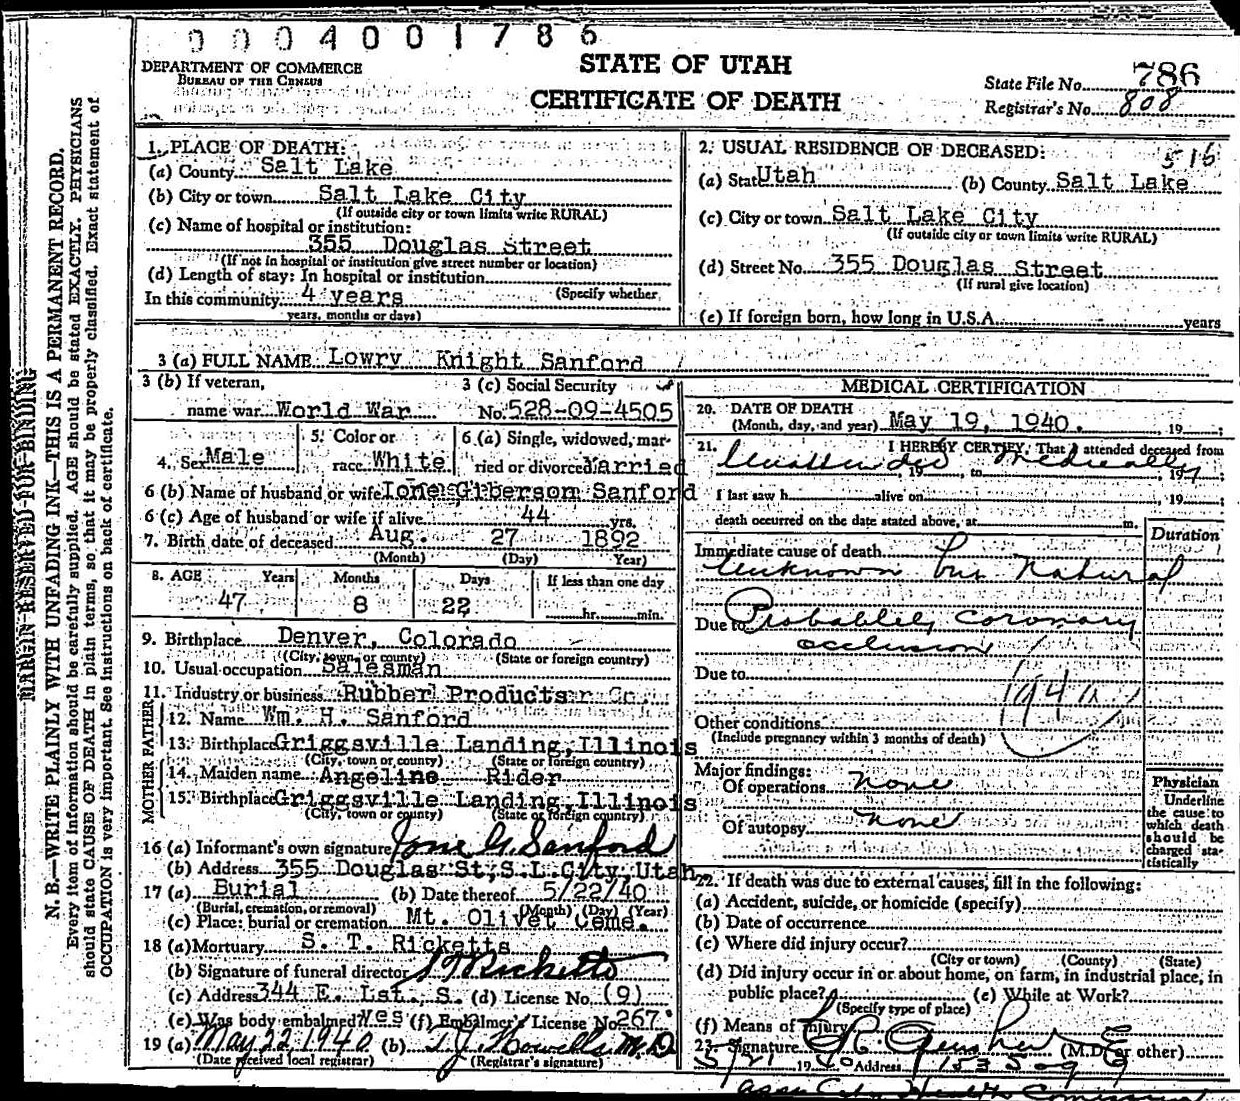 0004001786
DEPARTMENT OF COMMERCE
BUREAU OF THE CENSUS
STATE OF UTAH
CERTIFICATE OF DEATH
State File No. 786
Registrar's No. 808
MARGIN RESERVED FOR BINDING
N. B.—WRITE PLAINLY WITH UNFADING INK—THIS IS A PERMANENT RECORD.
Every item of information should be carefully supplied. AGE should be stated EXACTLY. PHYSICIANS
should state CAUSE OF DEATH in plain terms, so that it may be properly classified. Exact statement of
OCCUPATION is very important. See instructions on back of certificate.
1. PLACE OF DEATH:
(a) County Salt Lake
(b) City or town Salt Lake City
(If outside city or town limits write RURAL)
(c) Name of hospital or institution:
355 Douglas Street
(If not in hospital or institution give street number or location)
(d) Length of stay: In hospital or institution
In this community 4 years (Specify whether
years, months or days)
2. USUAL RESIDENCE OF DECEASED: 516
(a) Stat Utah (b) County Salt Lake
(c) City or town Salt Lake City
(If outside city or town limits write RURAL)
(d) Street No. 355 Douglas Street
(If rural give location)
(e) If foreign born, how long in U.S.A. years
3 (a) FULL NAME Lowry Knight Sanford
3 (b) If veteran, 3 (c) Social Security
name war World War No. 528-09-4505
4. Sex Male 5. Color or race White 6 (a) Single, widowed, married or divorced Married
6 (b) Name of husband or wife Ione Giberson Sanford
6 (c) Age of husband or wife if alive 44 yrs.
7. Birth date of deceased Aug. 27 1892
(Month) (Day) Year)
8. AGE Years Months Days If less than one day
47 8 22 hr. min.
9. Birthplace Denver, Colorado
(City, town, or county) (State or foreign country)
10. Usual occupation Salesman
11. Industry or business Rubber Products Co.
FATHER
12. Name Wm. H. Sanford
13. Birthplace Griggsville Landing, Illinois
(City, town or county) (State or foreign country)
MOTHER
14. Maiden name Angeline Rider
15. Birthplace Griggsville Landing, Illinois
(City, town or county) (State or foreign country)
16 (a) Informant's own signature Ione G. Sanford
(b) Address 355 Douglas St; S.L.City, Utah
17 (a) Burial (b) Date thereof 5/22/40
(Burial, cremation, or removal) (Month) (Day) (Year)
(c) Place: burial or cremation Mt. Olivet Ceme.
18 (a) Mortuary S. T. Ricketts
(b) Signature of funeral director S T Ricketts
(c) Address 344 E. 1st. S. (d) License No. (9)
(e) Was body embalmed? yes (f) Embalmer's License No. 267
19 (a) May 22 1940 (b) T J Howells M.D.
(Date received local registrar) (Registrar's signature)
MEDICAL CERTIFICATION
20. DATE OF DEATH
(Month, day, and year) May 19, 1940. , 19 ;
21. I HEREBY CERTIFY, That I attended deceased from
Unattended Medically , 19 to , 19 ;
I last saw h alive on , 19 ;
death occurred on the date stated above, at m.
Duration
Immediate cause of death
Unknown but Natural
Due to Probably coronary
occlusion
Due to
94a
Other conditions
(Include pregnancy within 3 months of death)
Major findings:
Of operations none
Of autopsy none
Physician
Underline
the cause to
which death
should be
charged sta-
tistically
22. If death was due to external causes, fill in the following:
(a) Accident, suicide, or homicide (specify)
(b) Date of occurrence
(c) Where did injury occur?
(City or town) (County) (State)
(d) Did injury occur in or about home, on farm, in industrial place, in
public place? (e) While at Work?
(Specify type of place)
(f) Means of Injury
23. Signature (M.D. or other)
5/21 1940 Address
Asst City Health